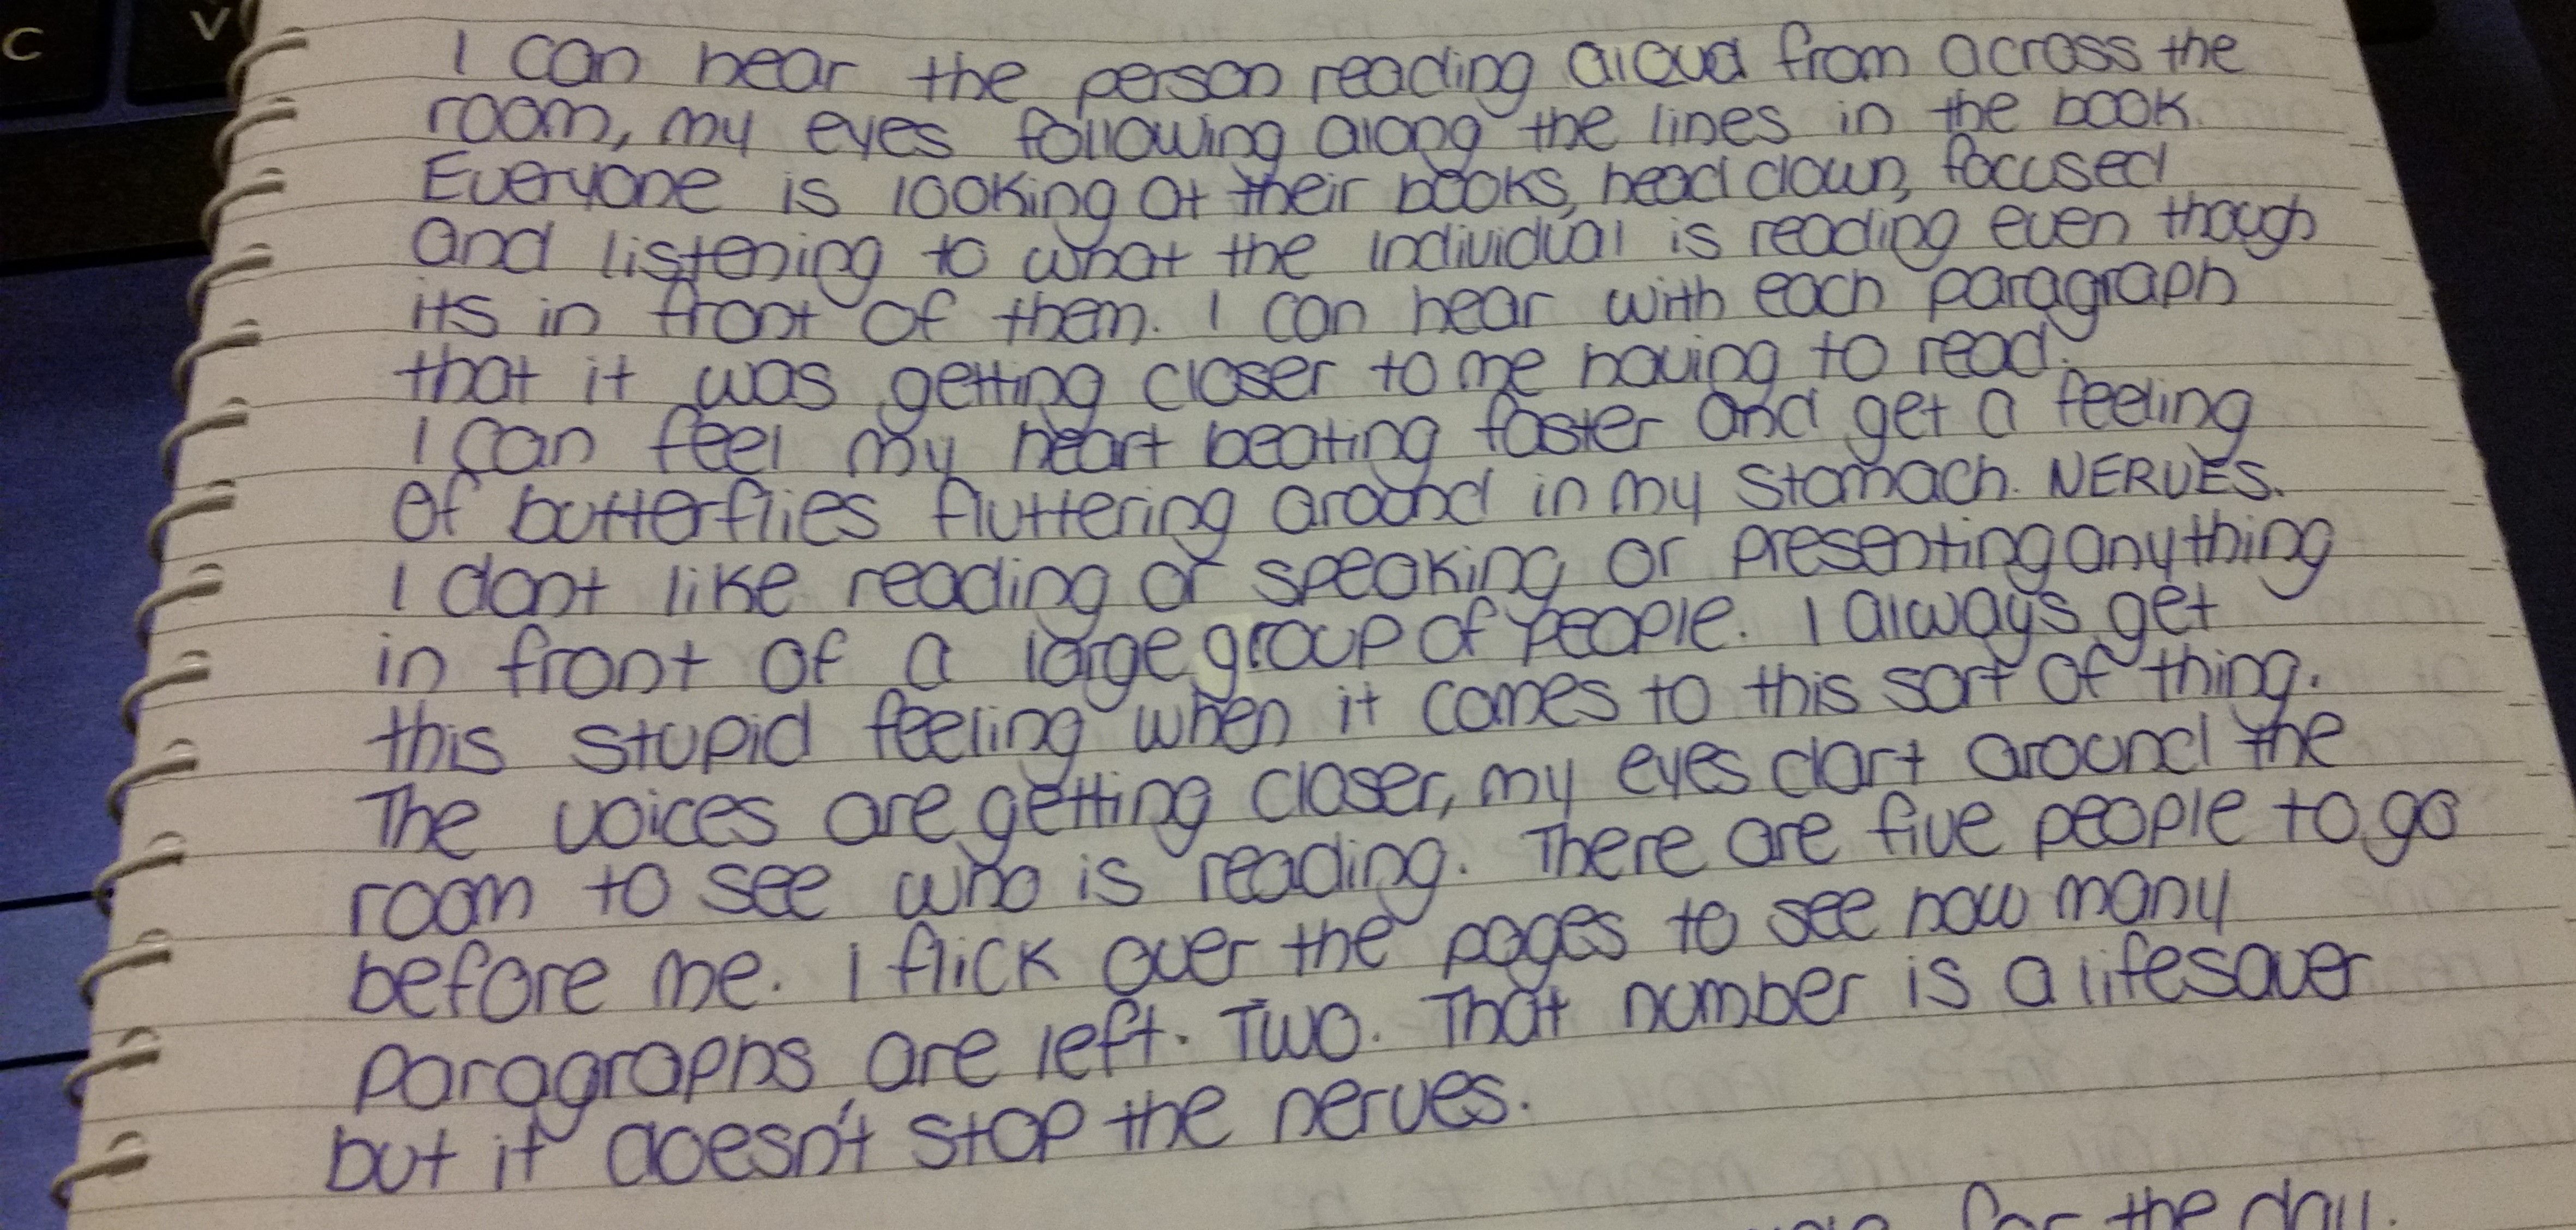 C V
I can hear the person reading aloud from across the
room, my eyes following along the lines in the book.
Everyone is looking at their books, head down, focused
and listening to what the individual is reading even though
its in front of them. I can hear with each paragraph
that it was getting closer to me having to read.
I can feel my heart beating faster and get a feeling
of butterflies fluttering around in my stomach. NERVES.
I dont like reading or speaking or presenting anything
in front of a large group of people. I always get
this stupid feeling when it comes to this sort of thing.
The voices are getting closer, my eyes dart around the
room to see who is reading. There are five people to go
before me. I flick over the pages to see how many
paragraphs are left. Two. That number is a lifesaver
but it doesn't stop the nerves.
for the day.